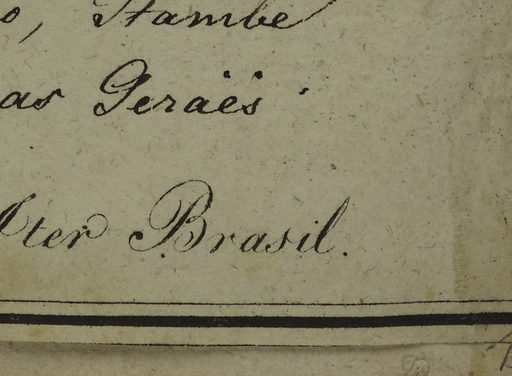 o, Itambé
as Geraës
Iter Brasil.